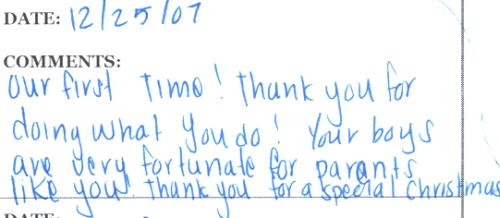 DATE: 12/25/07
COMMENTS:
Our first Time! Thank you for
doing what you do! Your boys
are very fortunate for parants
like you. Thank you for a special Christmas
DATE: